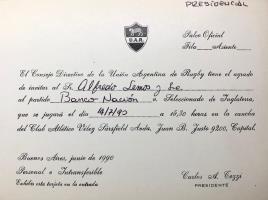 PRESIDENCIAL
U.A.R.
Palco Oficial
Fila Asiento
El Consejo Directivo de la Unión Argentina de Rugby tiene el agrado
de invitar al Sr. Alfredo Lemos y Sra.
al partido Banco Nación v. Seleccionado de Inglaterra,
que se jugará el día 14/7/90 a 15,30 horas en la cancha
del Club Atlético Vélez Sarsfield Avda. Juan B. Justo 9200, Capital.
Buenos Aires, junio de 1990
Personal e Intransferible
Exhiba esta tarjeta en la entrada
Carlos A. Tozzi
PRESIDENTE